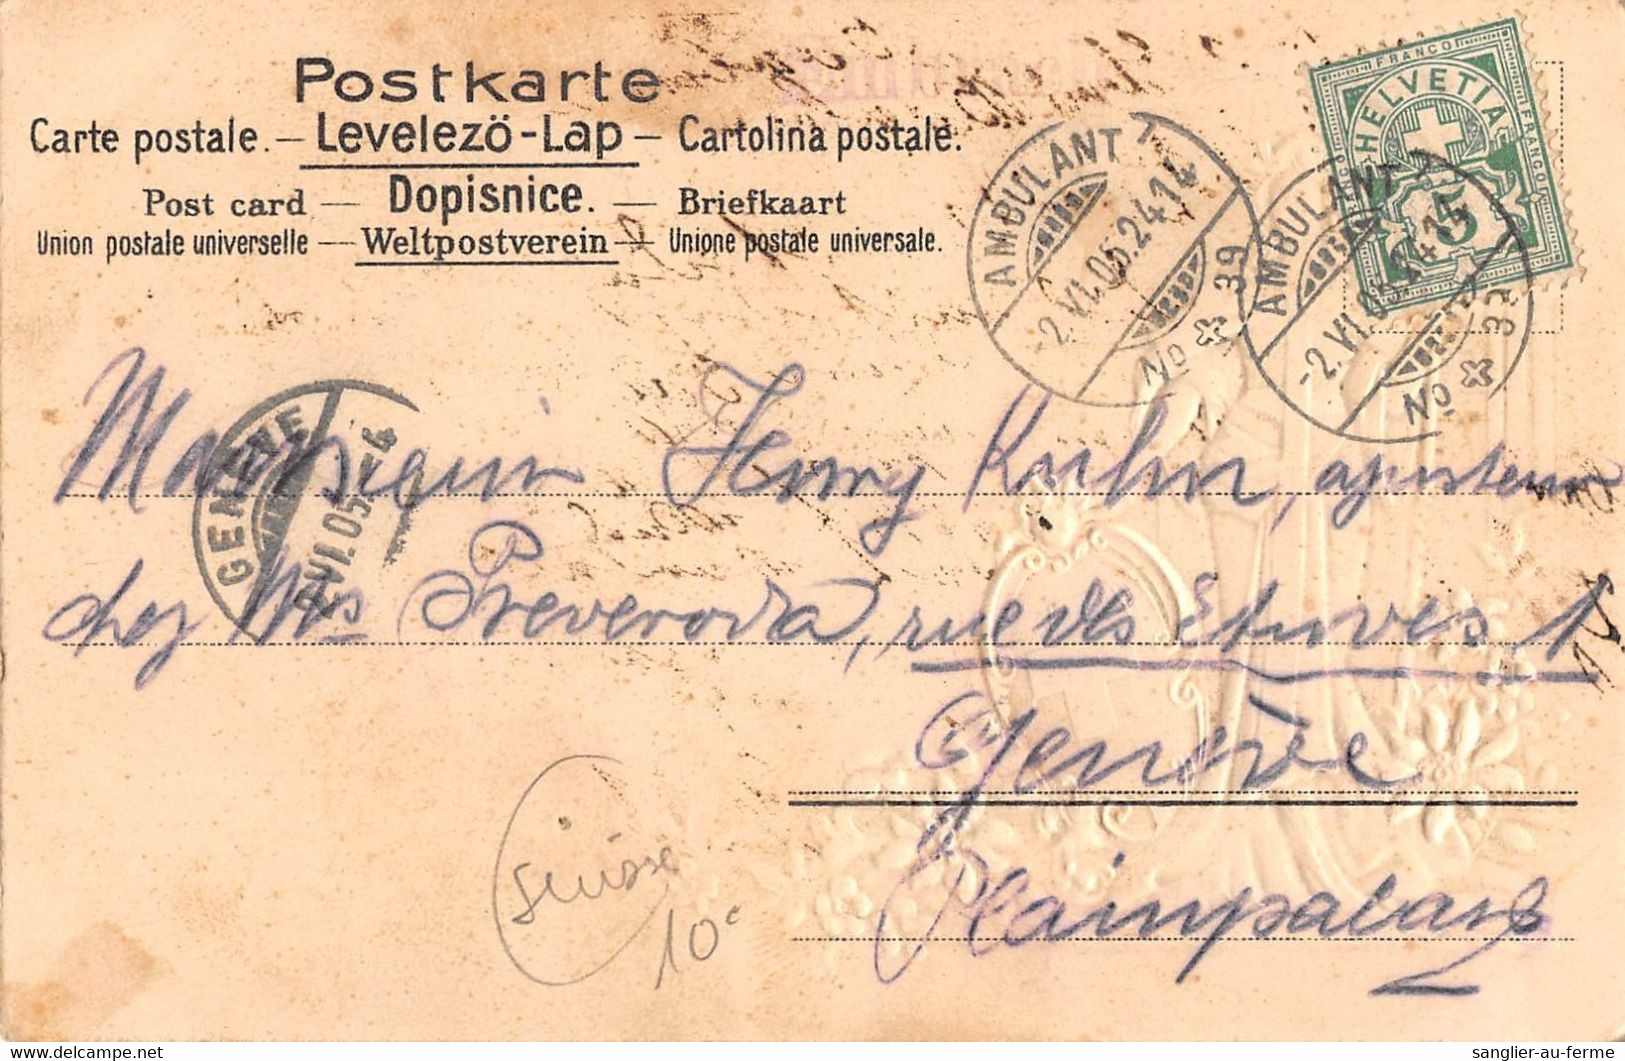 Postkarte
Carte postale. — Levelező-Lap — Cartolina postale.
Post card — Dopisnice. — Briefkaart
Union postale universelle — Weltpostverein — Unione postale universale.
FRANCO
HELVETIA
FRANCO
5
AMBULANT 7
-2.VI.05.24 14
No 39
AMBULANT 7
-2.VI.05.24 14
No 39
GENÈVE
2.VI.05.-4
Monsieur Henry Kuhn,
chez Mrs Preveroda, rue des Etuves 1
Genève
Plainpalais
Suisse
10c
sanglier-au-ferme